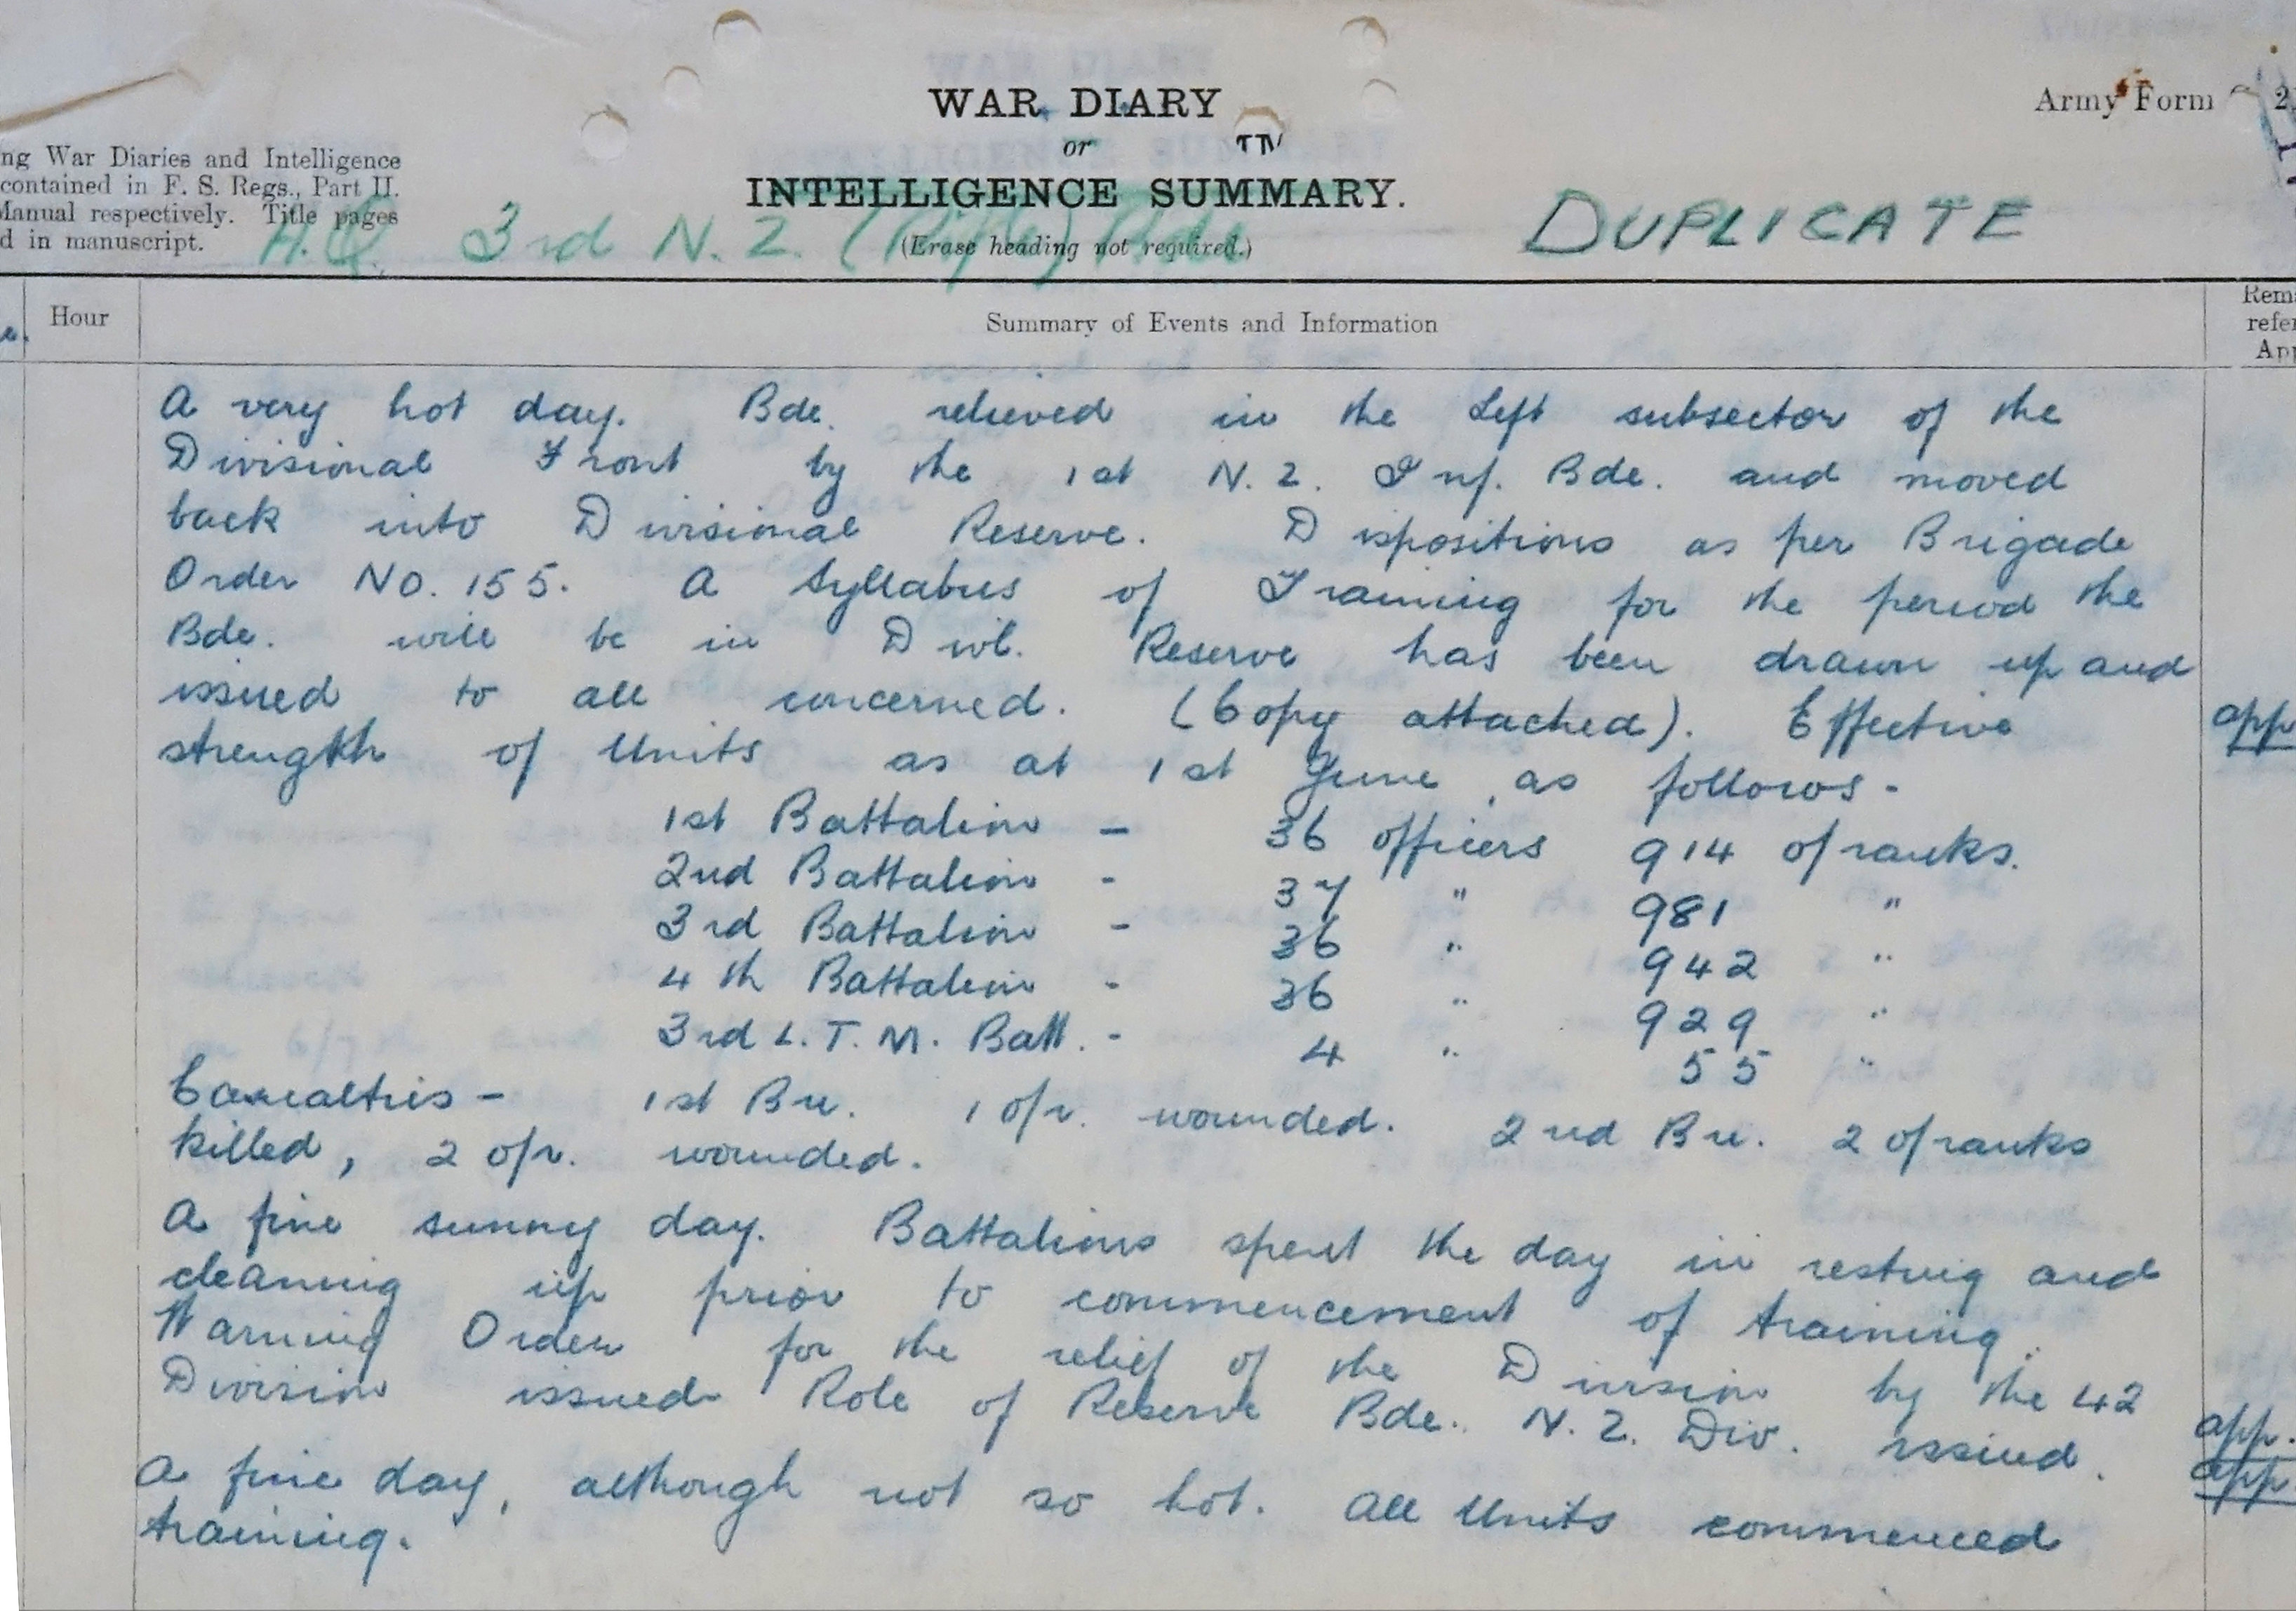 WAR DIARY
or
INTELLIGENCE SUMMARY.
(Erase heading not required.)
Army Form
ng War Diaries and Intelligence
contained in F. S. Regs., Part II.
Manual respectively. Title pages
d in manuscript.
H.Q. 3rd N.Z. (Rifle) Bde
DUPLICATE
Hour
Summary of Events and Information
Rem
refe
App
A very hot day. Bde. relieved in the Left subsector of the
Divisional Front by the 1st N.Z. Inf. Bde. and moved
back into Divisional Reserve. Dispositions as per Brigade
Order No. 155. A Syllabus of Training for the period the
Bde. will be in Divl. Reserve has been drawn up and
issued to all concerned. (Copy attached). Effective app
strength of Units as at 1st June, as follows -
1st Battalion - 36 officers 914 o/ranks.
2nd Battalion - 37 " 981 "
3rd Battalion - 36 " 942 "
4th Battalion - 36 " 929 "
3rd L.T.M. Batt. - 4 " 55 "
Casualties - 1st Bn. 1 o/r. wounded. 2nd Bn. 2 o/ranks
killed, 2 o/r. wounded.
A fine sunny day. Battalions spent the day in resting and
cleaning up prior to commencement of training.
Warning Order for the relief of the Division by the 42
Division issued Role of Reserve Bde. N.Z. Div. issued. app.
app.
A fine day, although not so hot. All Units commenced
training.